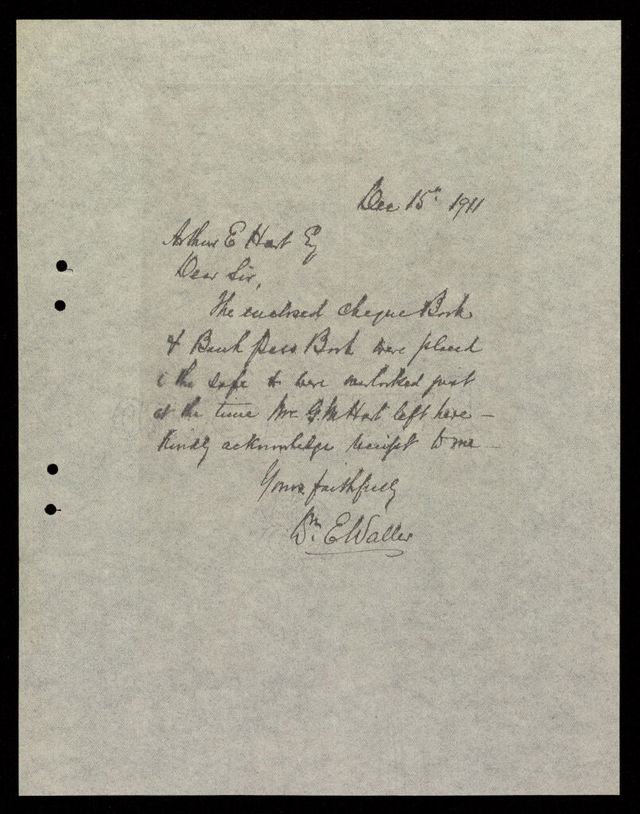 Dec 15th 1911
Arthur E Hart Esq
Dear Sir,
The enclosed Cheque Book
& Bank Pass Book were placed
i the safe & were overlooked just
at the time Mr G. M Hart left here –
Kindly acknowledge receipt to me –
Yours faithfully
Wm. E Waller